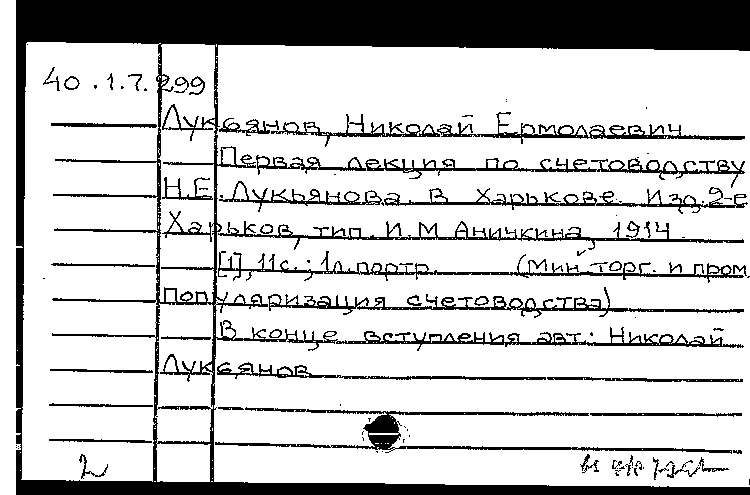 40.1.7.299
Лукьянов, Николай Ермолаевич
Первая лекция по счетоводству
Н.Е. Лукьянова в Харькове. Изд. 2-е
Харьков, тип. И.М Аничкина, 1914
[1], 11с.; 1л. портр. (Мин. торг. и пром
Популяризация счетоводства)
В конце вступления авт.: Николай
Лукьянов
2